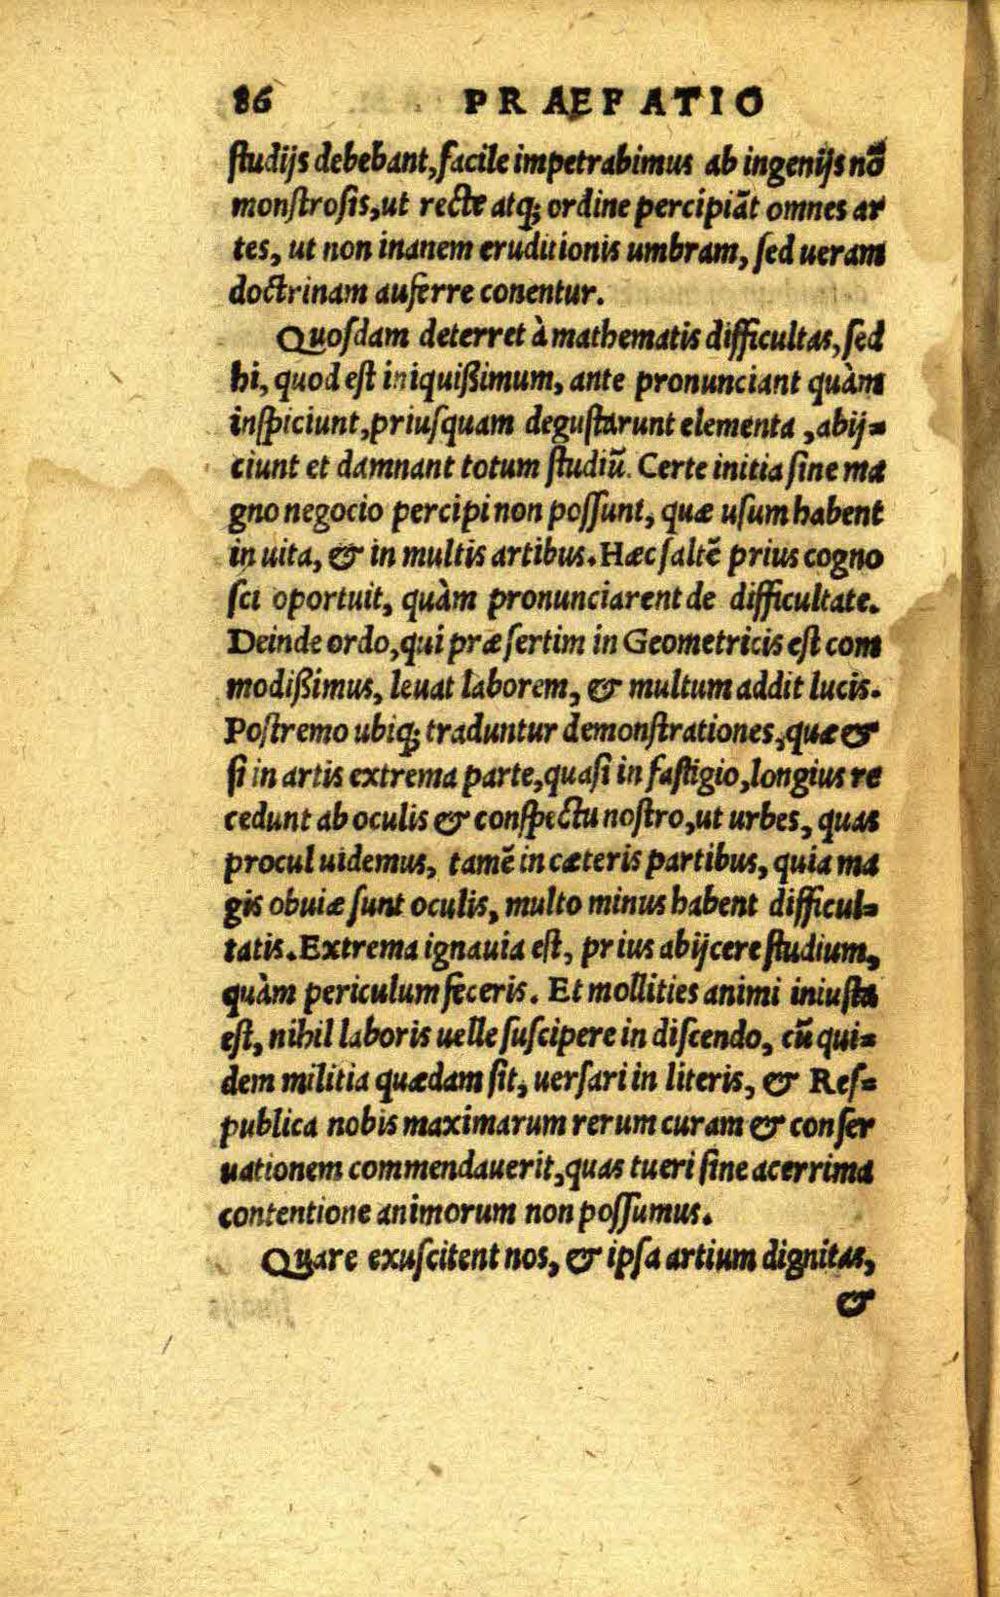 86 PRAEFATIO
ſtudijs debebant, facile impetrabimus ab ingenijs nō
monſtroſis, ut recte atq; ordine percipiāt omnes ar
tes, ut non inanem eruditionis umbram, ſed ueram
doctrinam auferre conentur.
Quoſdam deterret à mathematis difficultas, ſed
hi, quod est iniquißimum, ante pronunciant quàm
inſpiciunt, priuſquam deguſtarunt elementa, abij=
ciunt et damnant totum ſtudiū. Certe initia ſine ma
gno negocio percipi non poſſunt, quæ uſum habent
in uita, & in multis artibus. Hæc ſaltē prius cogno
ſci oportuit, quàm pronunciarent de difficultate.
Deinde ordo, qui præſertim in Geometricis eſt com
modißimus, leuat laborem, & multum addit lucis.
Poſtremo ubiq; traduntur demonſtrationes, quæ &
ſi in artis extrema parte, quaſi in faſtigio, longius re
cedunt ab oculis & conſpectu noſtro, ut urbes, quas
procul uidemus, tamē in cæteris partibus, quia ma
gis obuiæ ſunt oculis, multo minus habent difficul=
tatis. Extrema ignauia eſt, prius abijcere ſtudium,
quàm periculum feceris. Et mollities animi iniuſta
eſt, nihil laboris uelle ſuſcipere in diſcendo, cū qui=
dem militia quædam ſit, uerſari in literis, & Reſ=
publica nobis maximarum rerum curam & conſer
uationem commendauerit, quas tueri ſine acerrima
contentione animorum non poſſumus.
Quare exuſcitent nos, & ipſa artium dignitas,
&